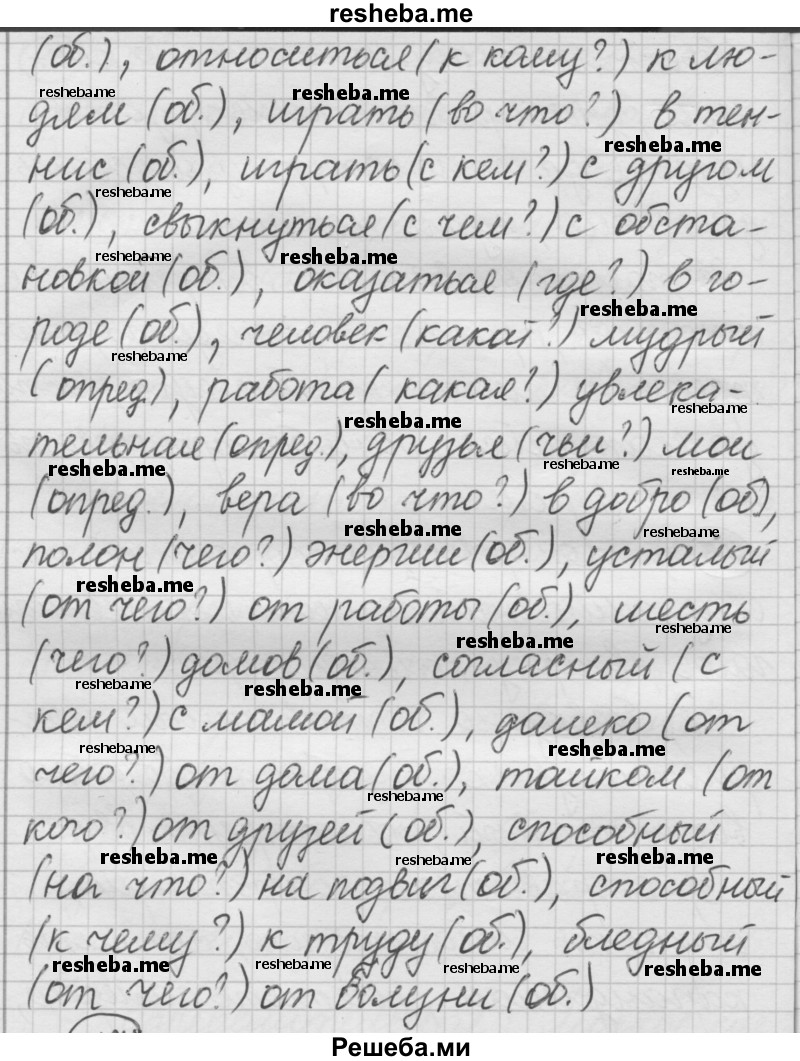 resheba.me
(об.), относиться (к кому?) к лю-
resheba.me resheba.me
дям (об.), играть (во что?) в тен-
resheba.me
нис (об.), играть (с кем?) с другом
resheba.me
(об.), свыкнуться (с чем?) с обста-
resheba.me resheba.me
новкой (об.), оказаться (где?) в го-
resheba.me
роде (об.), человек (какой?) мудрый
resheba.me
(опред.), работа (какая?) увлека-
resheba.me resheba.me
тельная (опред.), друзья (чьи?) мои
resheba.me resheba.me resheba.me
(опред.), вера (во что?) в добро (об),
resheba.me resheba.me
полон (чего?) энергии (об.), усталый
resheba.me
(от чего?) от работы (об.), шесть
resheba.me resheba.me
(чего?) домов (об.), согласный (с
resheba.me resheba.me
кем?) с мамой (об.), далеко (от
resheba.me resheba.me
чего?) от дома (об.), тайком (от
resheba.me
кого?) от друзей (об.), способный
resheba.me resheba.me resheba.me
(на что?) на подвиг (об.), способный
(к чему?) к труду (об.), бледный
resheba.me resheba.me resheba.me resheba.me
(от чего?) от болузни (об.)
Решеба.ми